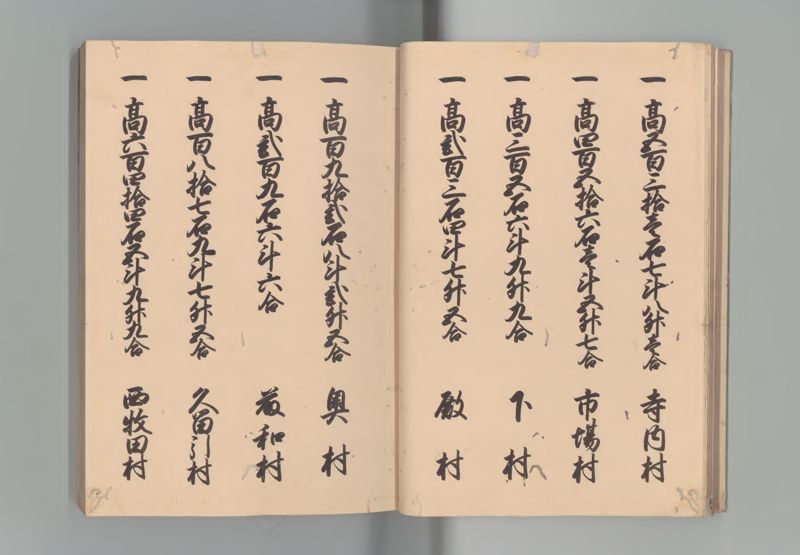 一 高五百三拾壱石七斗八升壱合 寺内村
一 高四百五拾六石壱斗五升七合 市場村
一 高三百五石六斗九升九合 下村
一 高弐百三石四斗七升五合 殿村
一 高百九拾弐石八斗弐升五合 奥村
一 高弐百九石六斗六合 和村
一 高百八拾七石九斗七升五合 久留引村
一 高六百四拾四石五斗九升九合 西牧田村